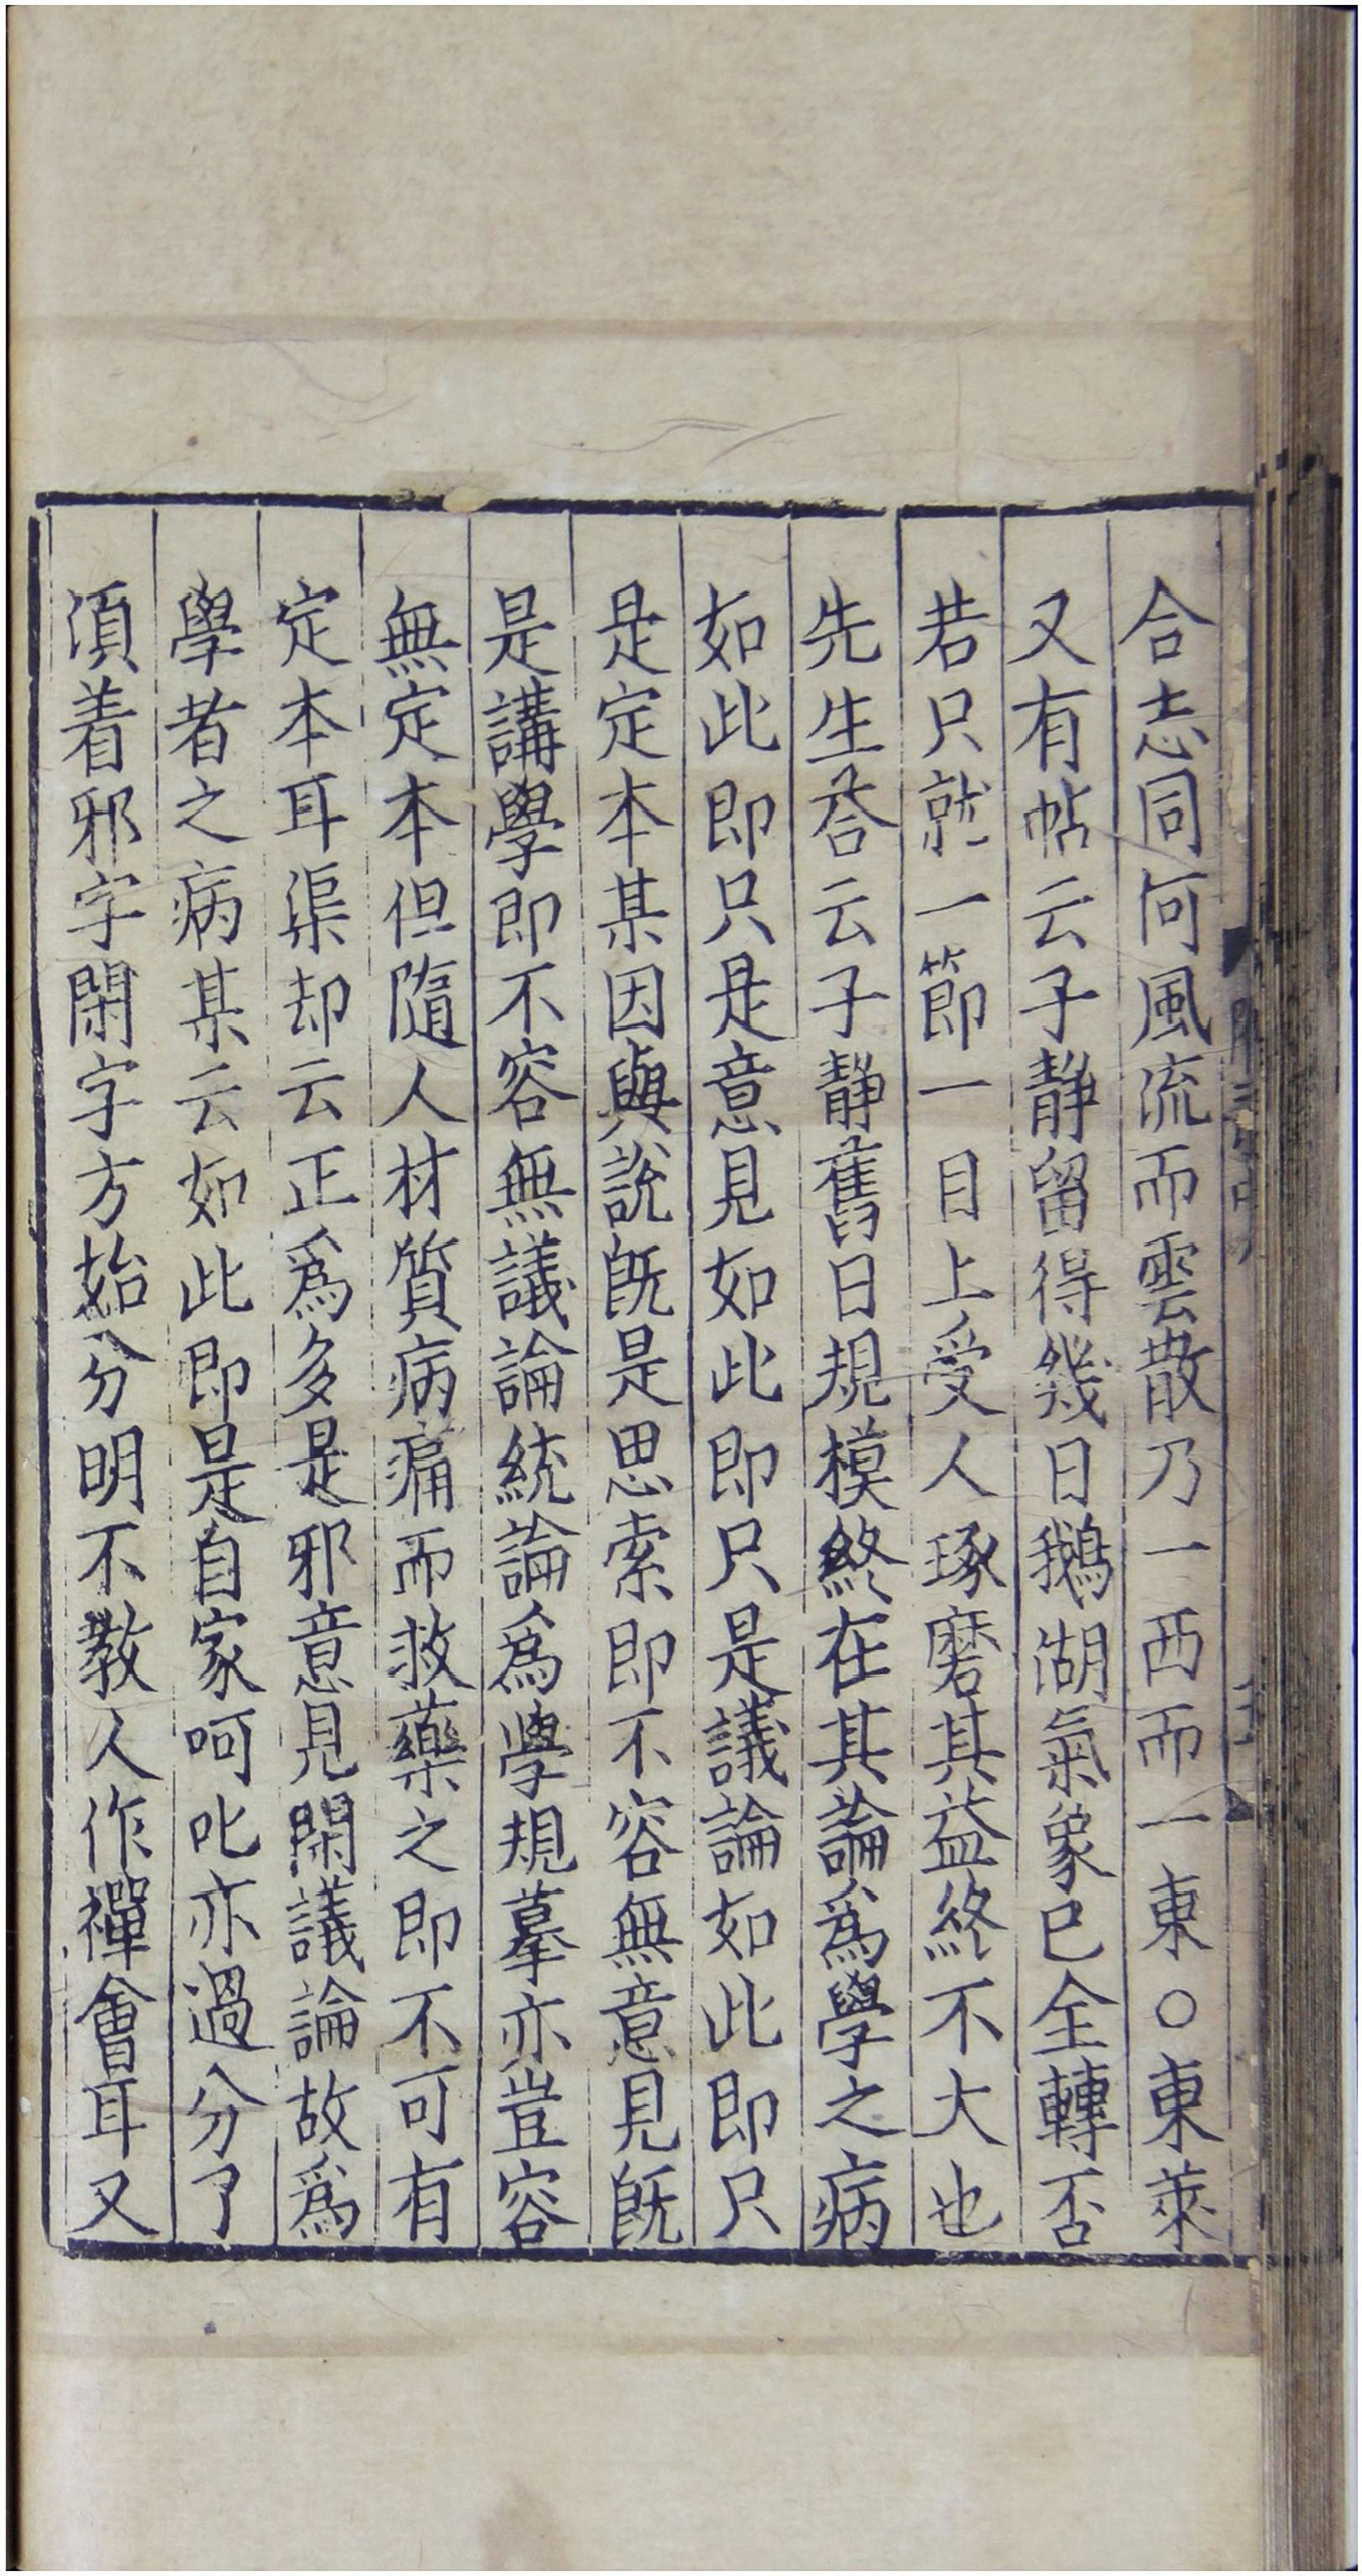 合志同何風流而雲散乃一西而一東○東萊
又有帖云子靜留得幾日鵝湖氣象已全轉否
若只就一節一目上受人琢磨其益終不大也
先生荅云子靜舊日規模終在其論爲學之病
如此即只是意見如此即只是議論如此即只
是定本某因與說既是思索即不容無意見既
是講學即不容無議論統論爲學規摹亦豈容
無定本但隨人材質病痛而救藥之即不可有
定本耳渠却云正爲多是邪意見閑議論故爲
學者之病某云如此即是自家呵叱亦過分了
須着邪字閑字方始分明不教人作禪會耳又